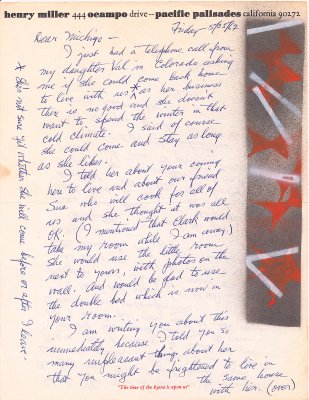 henry miller 444 ocampo drive – pacific palisades california 90272
Friday
Dear Michiyo –
I just had a telephone call from
my daughter Val in Colorado asking
me if she could come back home
to live with us* as her business
there is no good and she doesn't
want to spend the winter in that
cold climate. I said of course
she could come and stay as long
as she likes.
I told her about your coming
here to live and about our friend
Sue who will cook for all of
us and she thought it was all
OK. (I mentioned that Clark would
take my room while I am away.)
She would use the little room
next to yours, with photos on the
wall. And would be glad to use
the double bed which is now in
your room.
I am writing you about this
immediately because I told you so
many unpleasant things about her
that you might be frightened to live in
the same house
with her. (over)
* She's not sure yet whether she will come before or after I leave.
"The time of the hyena is upon us"